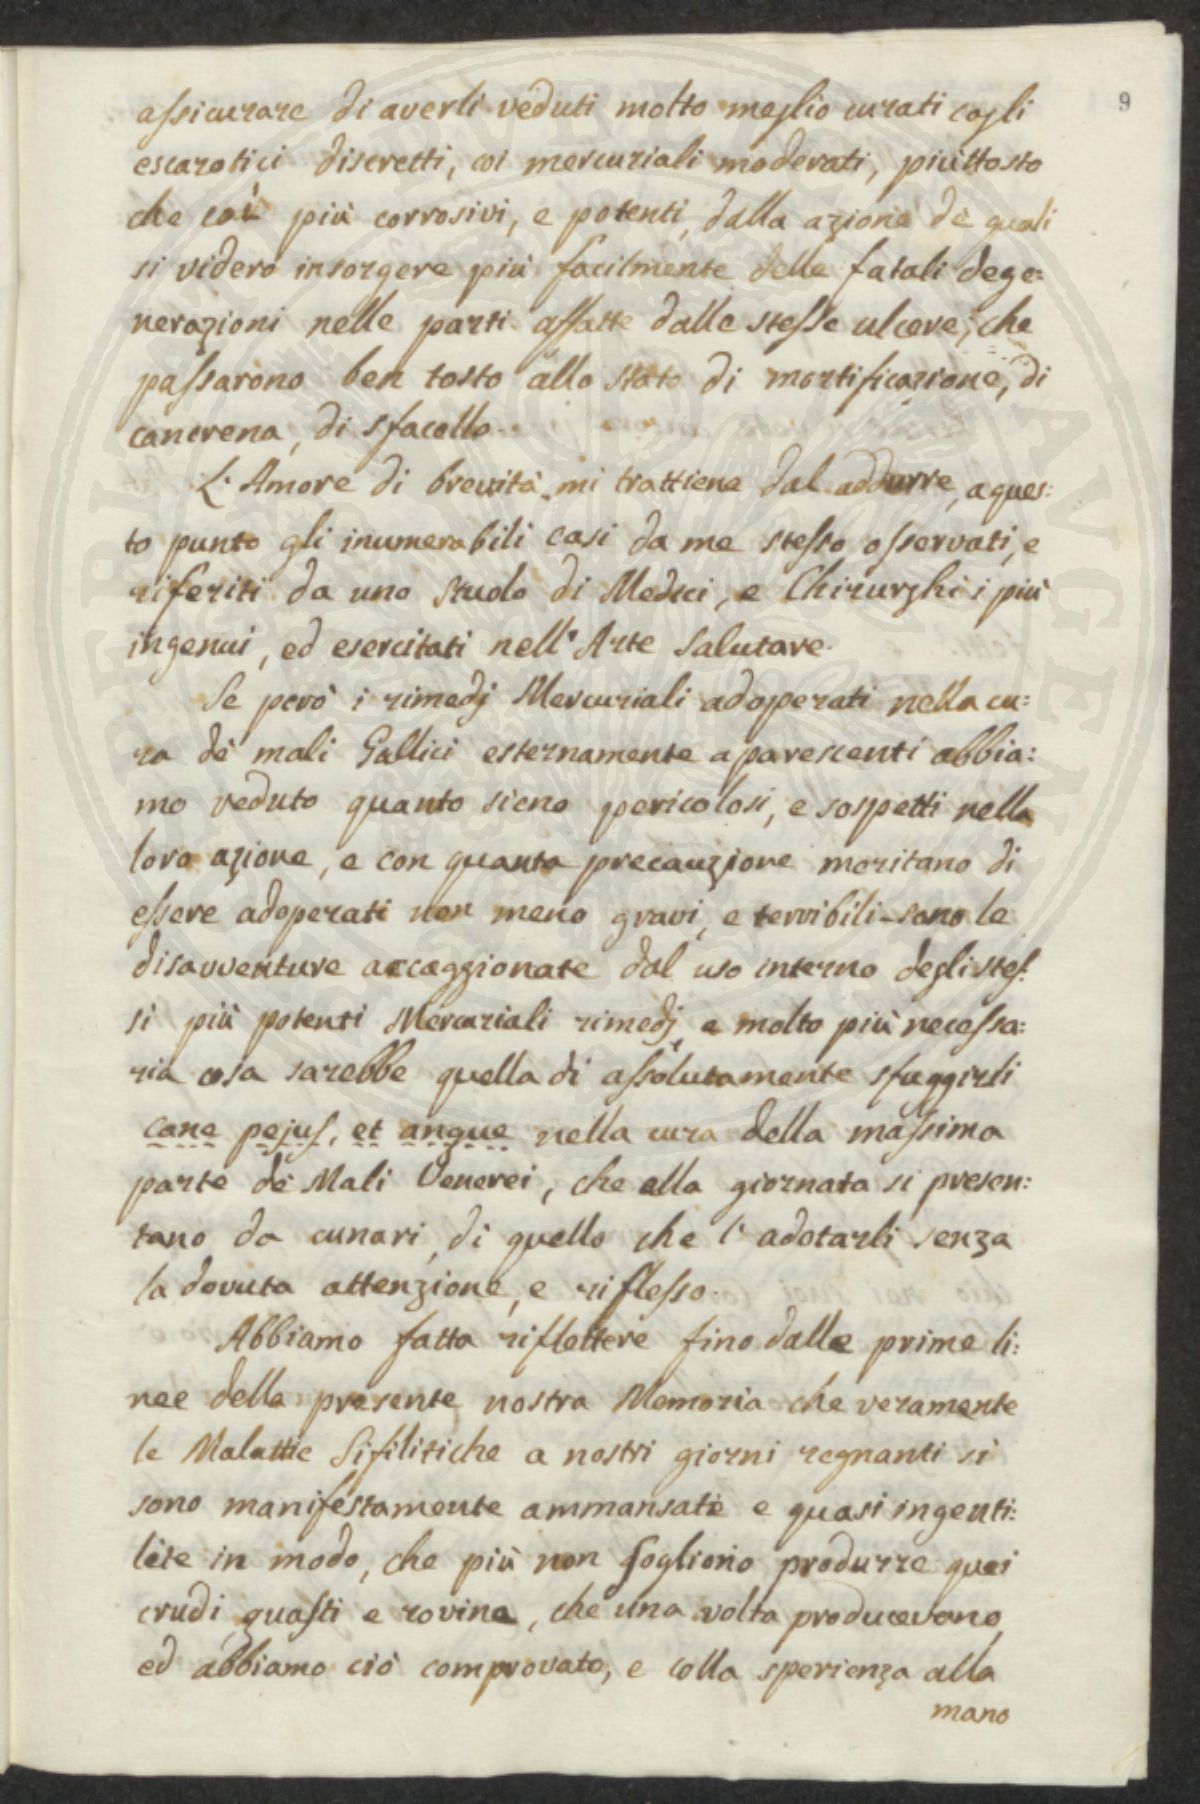 9
assicurare di averli veduti molto meglio curati cogli
escarotici discretti, coi mercuriali moderati, piuttosto
che coi più corrosivi, e potenti, dalla azione de quali
si videro insorgere più facilmente delle fatali dege:
nerazioni nelle parti affatte dalle stesse ulcere, che
passarono ben tosto allo stato di mortificazione, di
cancrena, di sfacello.
L'Amore di brevità mi trattiene dal addurre, a ques:
to punto gli inumerabili casi da me stesso osservati, e
riferiti da uno stuolo di Medici, e Chirurghi i più
ingenui, ed esercitati nell'Arte Salutare.
Se però i rimedj Mercuriali adoperati nella cu:
ra de mali Gallici esternamente aparescenti abbia:
mo veduto quanto sieno pericolosi, e sospetti nella
loro azione, e con quanta precauzione meritano di
essere adoperati non meno gravi, e terribili sono le
disavventure accaggionate dal uso interno degli stes:
si più potenti Mercuriali rimedj, e molto più necessa:
ria cosa sarebbe quella di assolutamente sfuggirli
cane pejus, et angue nella cura della massima
parte de Mali Venerei, che alla giornata si presen:
tano da curari, di quello che l'adotarli senza
la dovuta attenzione, e riflesso.
Abbiamo fatto riflettere fino dalle prime li:
nee della presente nostra Memoria che veramente
le Malattie Sifilitiche a nostri giorni regnanti si
sono manifestamente ammansate e quasi ingenti:
lite in modo, che più non sogliono produrre quei
crudi guasti e rovine, che una volta producevano,
ed abbiamo ciò comprovato, e colla sperienza alla
mano